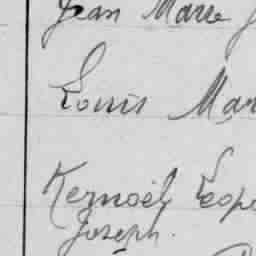 Jean Marie J
Louis Mar
Keznoël Léopo
Joseph.